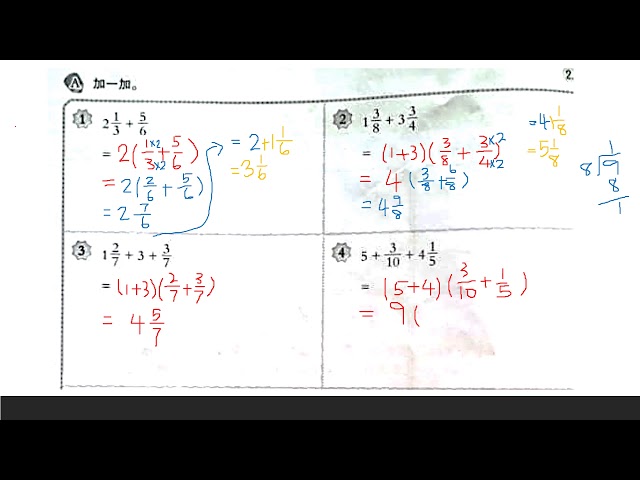 A 加一加。
2.
1 2 1/3 + 5/6
= 2(1×2/3×2 + 5/6)
= 2(2/6 + 5/6)
= 2 7/6
= 2+1 1/6
= 3 1/6
2 1 3/8 + 3 3/4
= (1+3)(3/8 + 3×2/4×2)
= 4 (3/8 + 6/8)
= 4 9/8
= 4+1 1/8
= 5 1/8
1
8√9
8
1
3 1 2/7 + 3 + 3/7
= (1+3)(2/7 + 3/7)
= 4 5/7
4 5 + 3/10 + 4 1/5
= (5+4)(3/10 + 1/5)
= 9(